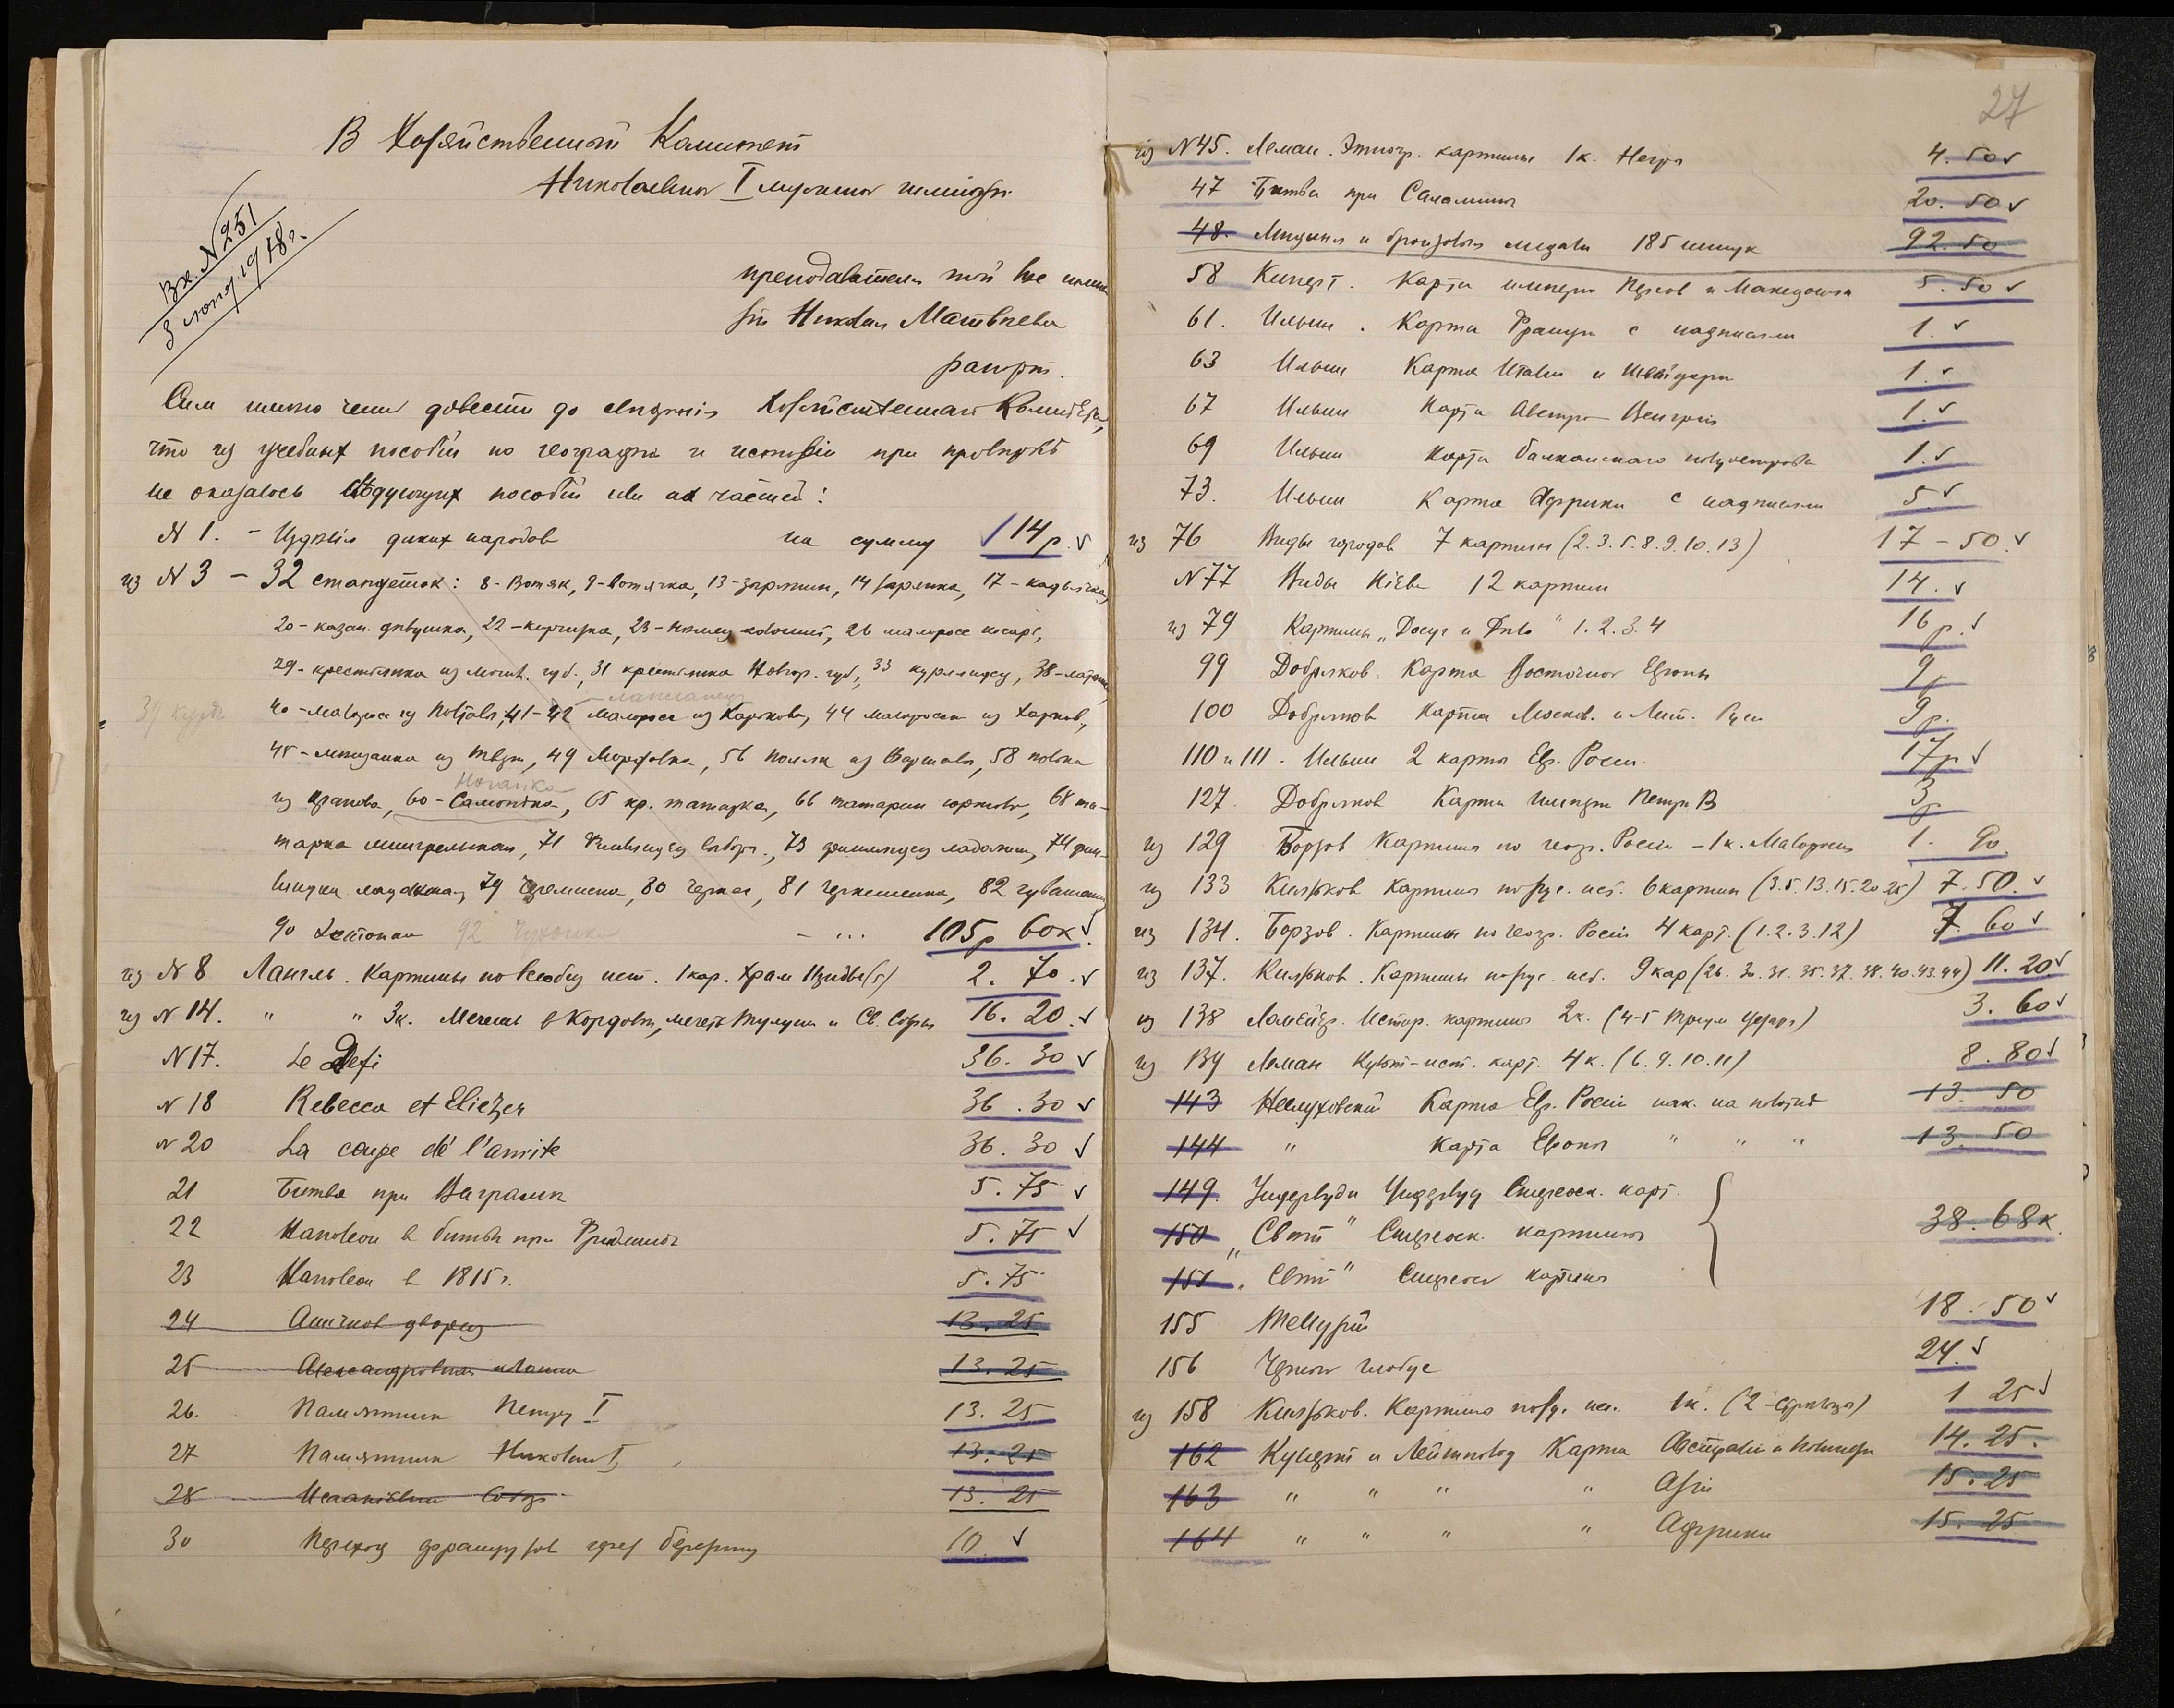 27
В Хозяйственный Комитет
Николаевской I мужской гимназiи
Вх. N 251
3 1918 г.
преподавателя той же гимна
зiи Николая Матвѣева
рапорт.
Сим имею честь довести до свѣдѣнiя Хозяйственнаго Комитета,
что из учебных пособiй по географiи и исторiи при провѣркѣ
не оказалось слѣдующих пособiй или их частей:
N 1. - Издѣлiя диких народов на сумму 14 р.
из N 3 - 32 статуеток: 8-Вотяк, 9-вотячка, 13-зырянин, 14 зырянка, 17-
20-казан. дѣвушка, 22-киргизка, 23-нѣмец колонист, 26
29-крестьянка из могил. губ., 31 крестьянка Новгор. губ., 33 курляндец, 38-
40-малоросс из Полтавы, 41-42 малоросса из Харькова, 44 малороссы из Харьков.,
45-мещанка из Твери, 49 Мордовка, 56 поляк из Варшавы, 58 полька
Ногайка
из Кракова, 60-Самоѣдка, 65 кр. татарка, 66 татарин 68 та-
тарка мингрельская, 71 73 финляндец 74 фин-
79 Черемиска, 80 Черкес, 81 Черкешенка, 82
90 Эстонка - ... 105 р 60 к.
из N 8 Лангль. Картины по всеобщ ист. 1 кар. Храм 2. 70.
из N 14. " " 3 к. Мечеть в Кордове, мечеть Тулуна и Св. Софiи 16. 20.
N 17. Le Defi 36. 30
N 18 Rebecca et Eliezer 36. 30
N 20 La coupe dé l'amite 36. 30
21 Битва при Ваграмѣ 5. 75
22 Наполеон в битвѣ при Фридландѣ 5. 75
23 Наполеон в 1815 г. 5. 75
24 Аничков дворец 13. 25
25 Александровская колонна 13. 25
26. Памятник Петру I 13. 25
27 Памятник Николаю I 13. 25
28 Исаакiевский Собор 13. 25
30 Переход французов через Березину 10
из N 45. Леман. Этногр. картины 1 к. Негры 4. 50
47 Битва при Саламинѣ 20. 50
48. Мѣдныя и бронзовыя медали 185 штук 92. 50
58 Киперт. Карта имперiи Персов и Македонян 5. 50
61. Ильин. Карта Францiи с надписями 1.
63 Ильин Карта Италiи и Швейцарiи 1.
67 Ильин Карта Австро-Венгрiи 1.
69 Ильин Карта Балканскаго полуострова 1.
73. Ильин Карта Африки с надписями 5
из 76 Виды городов 7 картин (2. 3. 5. 8. 9. 10. 13) 17 - 50.
N 77 Виды Кiева 12 картин 14.
из 79 Картины „Досуг и Дѣло" 1. 2. 3. 4 16 р.
99 Добряков. Карта Восточной Европы 9 р
100 Добряков Карта Москов. и Лит. Руси 9 р.
110 и 111. Ильин 2 карты Евр. Россiи. 17 р
127. Добряков Карта Имперiи Петра В 3 р
из 129 Борзов Картины по геогр. Россiи - 1 к. Малороссы 1. 90.
из 133 Князьков Картины по рус. ист. 6 картин (3. 5. 13. 15. 20. 25) 7. 50.
из 134. Борзов. Картины по геогр. Россiи 4 карт. (1. 2. 3. 12) 7. 60
из 137. Князьков. Картины по рус. ист. 9 кар (26. 30. 31. 35. 37. 38. 40. 43. 44) 11. 20
из 138 Истор. картины 2 к. (4-5 Трiумф Цезаря) 3. 60
из 139 Леман Культ-ист. карт. 4 к. (6. 9. 10. 11) 8. 80
143 Нелуховский Карта Евр. Россiи нак. на полотнѣ 13. 50
144 " Карта Европы " " " 13. 50
149. Ундервуд Стереоск. карт.
150 „Свѣт" Стереоск. картины 38. 68 к.
151 „Свѣт" Стереоск картины
155 Теллурiй 18. 50
156 Черный глобус 24.
из 158 Князьков. Картины по ру. ис. 1 к. (2-) 1 25
162 Кунерт и Лейпольд Карта Австралiи и Полинезiи 14. 25.
163 " " " " Азiи 15. 25
164 " " " " Африки 15. 25